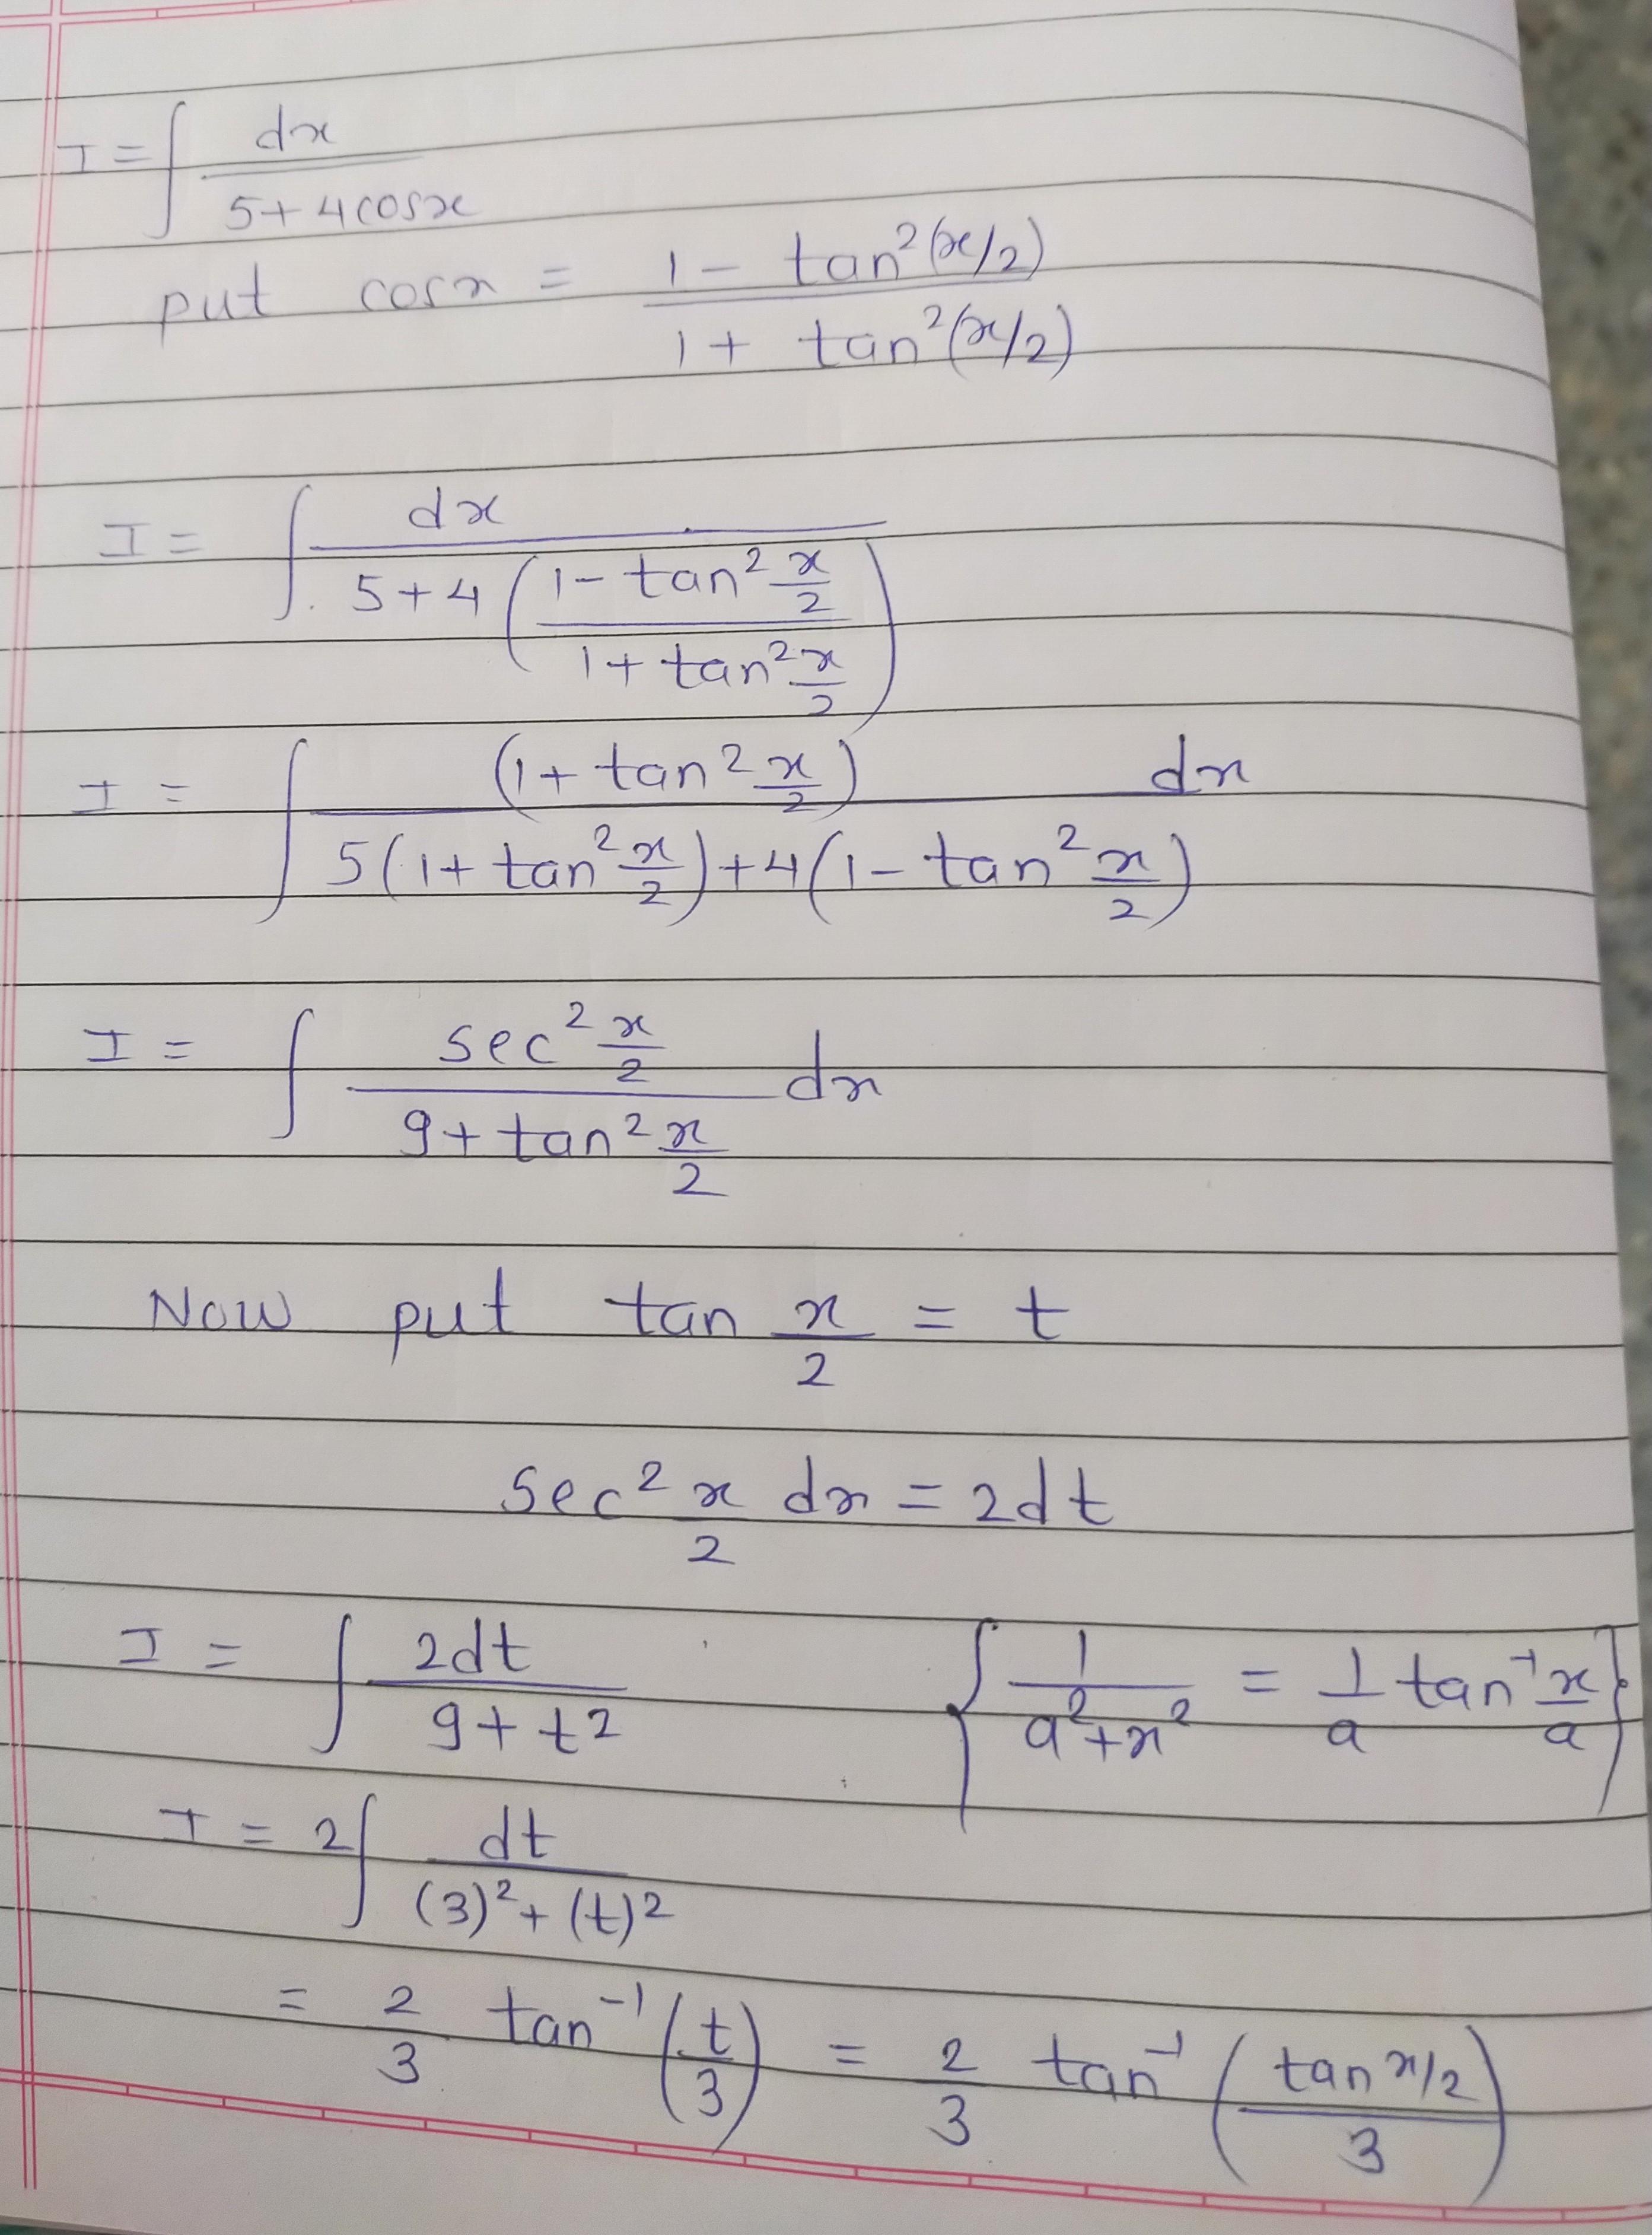 I = ∫ dx / (5 + 4 cosx)
put cosx = (1 - tan²(x/2)) / (1 + tan²(x/2))
I = ∫ dx / (5 + 4 ((1 - tan² x/2) / (1 + tan² x/2)))
I = ∫ (1 + tan² x/2) dx / (5(1 + tan² x/2) + 4(1 - tan² x/2))
I = ∫ (sec² x/2) / (9 + tan² x/2) dx
Now put tan x/2 = t
sec² x/2 dx = 2dt
I = ∫ 2dt / (9 + t²) {∫ 1 / (a² + x²) = 1/a tan⁻¹ x/a}
I = 2∫ dt / ((3)² + (t)²)
= 2/3 tan⁻¹ (t/3) = 2/3 tan⁻¹ ((tan x/2) / 3)